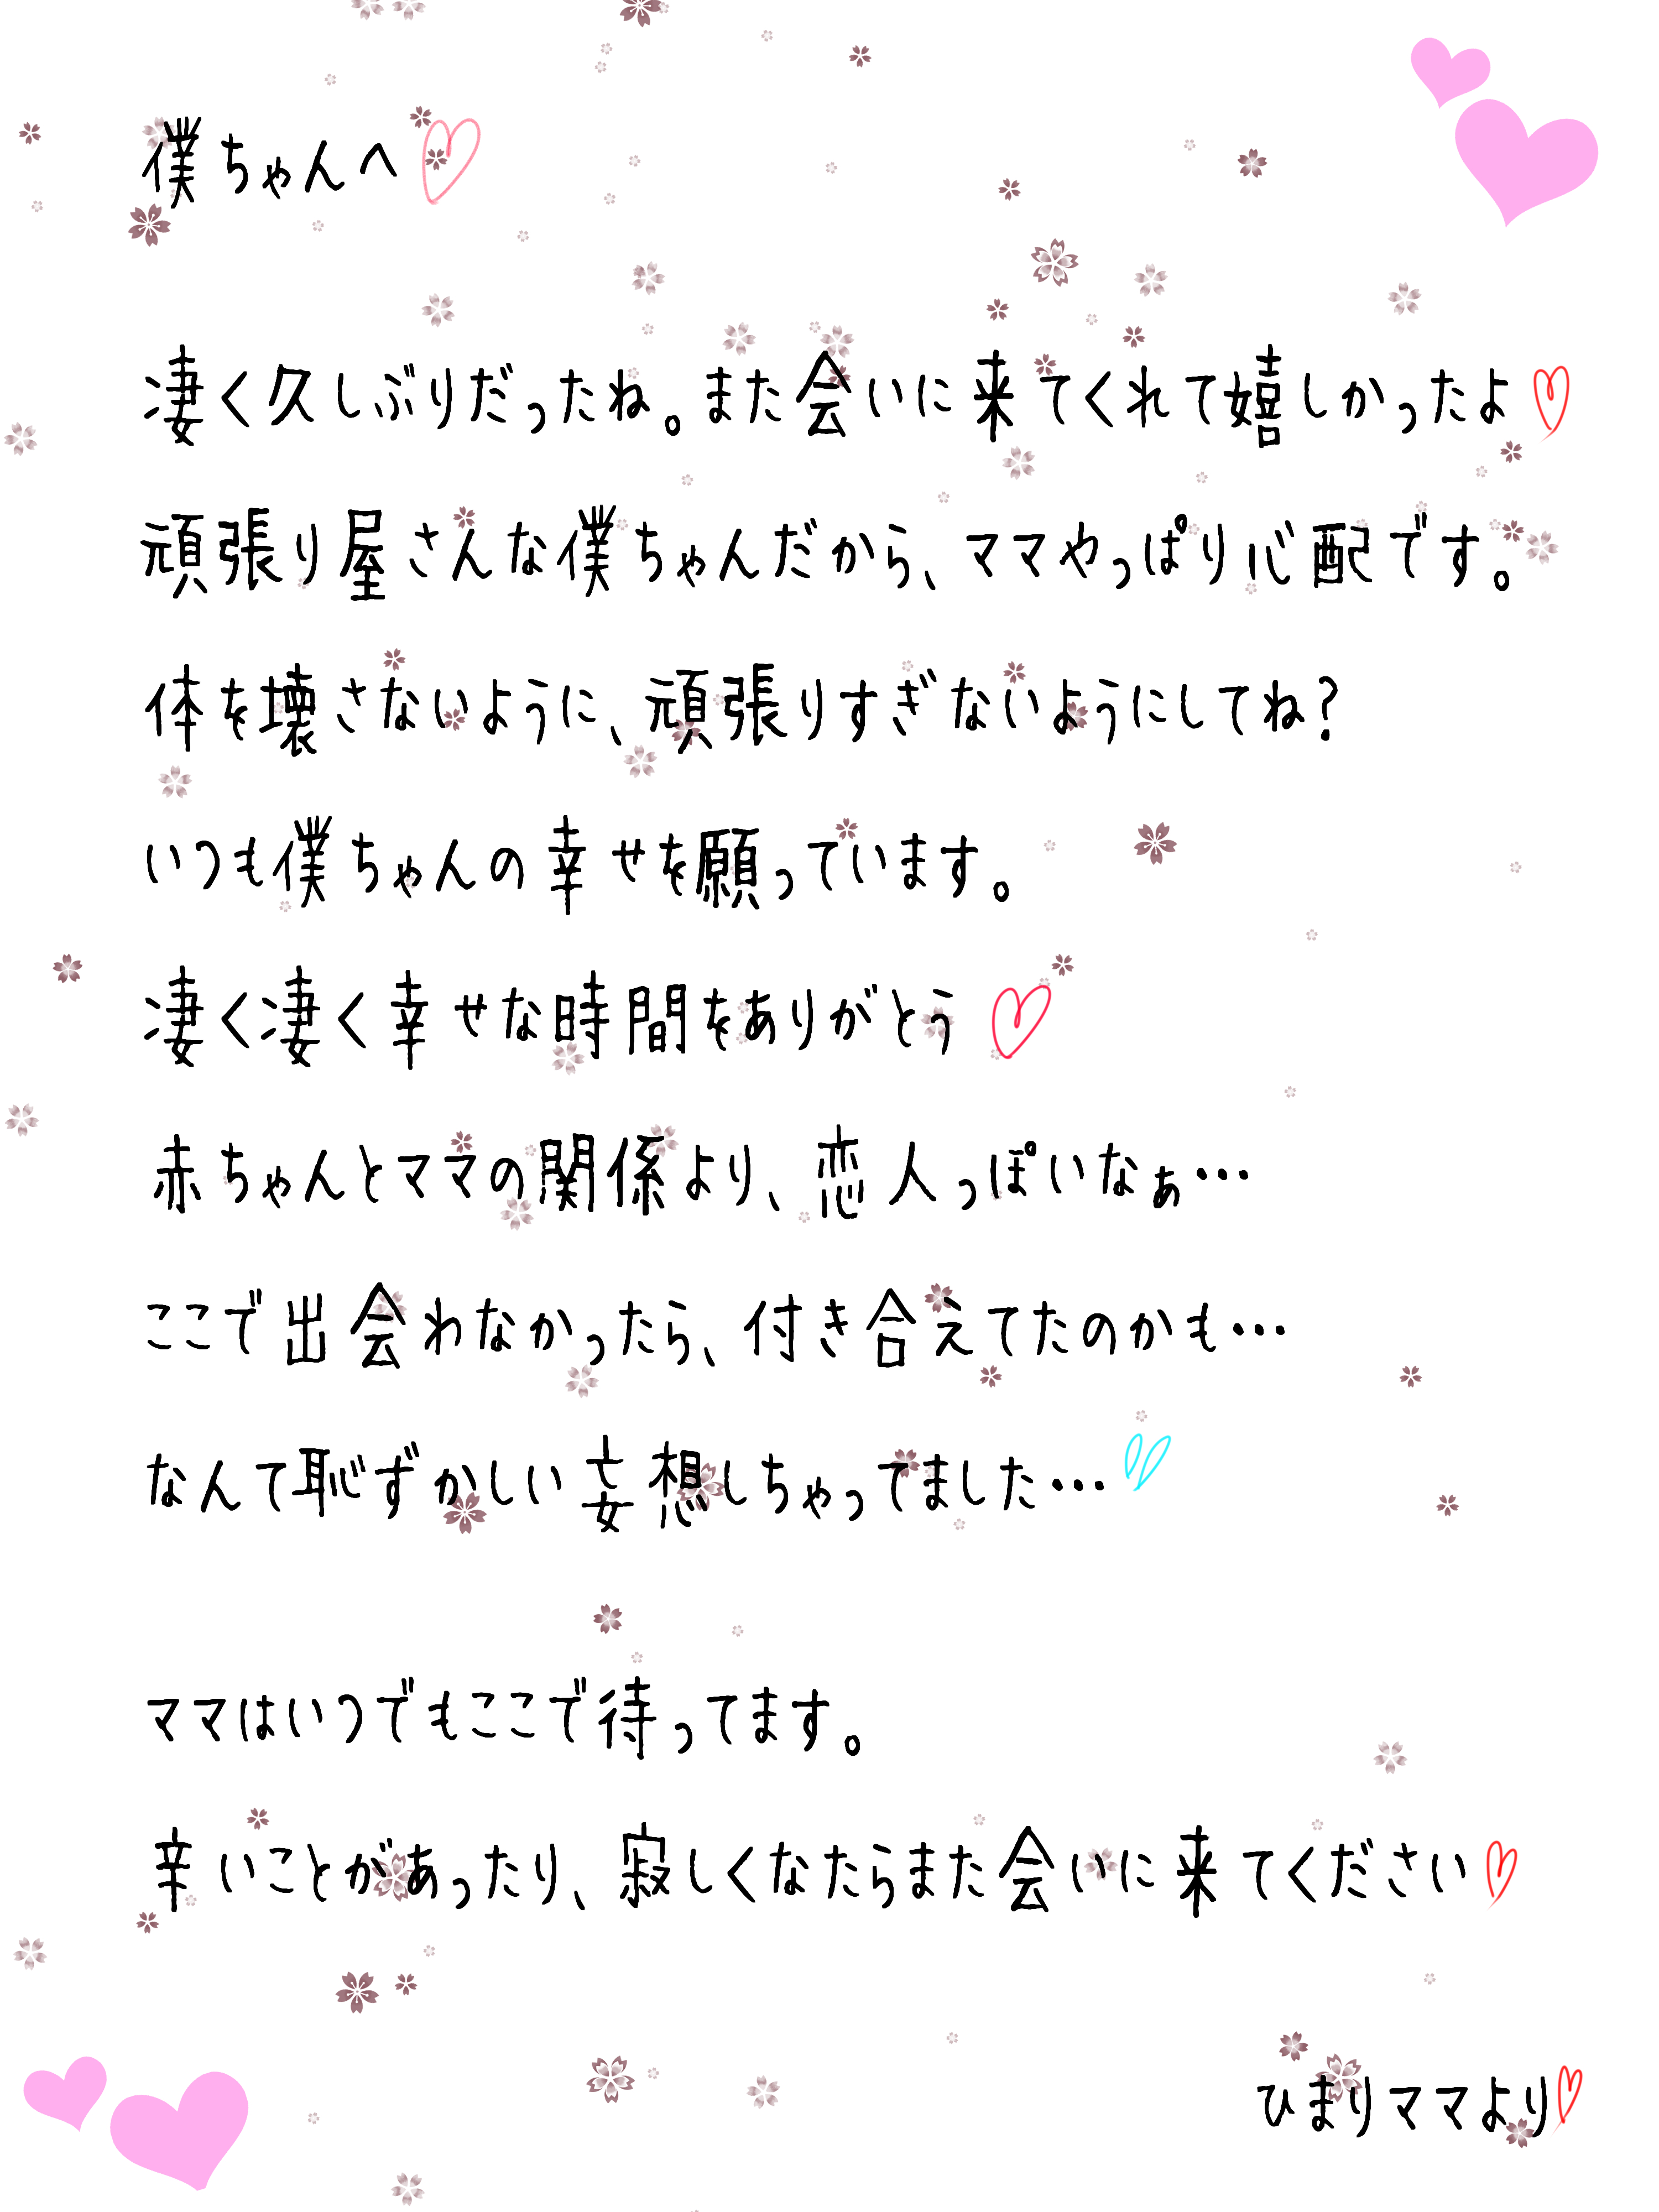 僕ちゃんへ♡
凄く久しぶりだったね。また会いに来てくれて嬉しかったよ♡
頑張り屋さんな僕ちゃんだから、ママやっぱり心配です。
体を壊さないように、頑張りすぎないようにしてね?
いつも僕ちゃんの幸せを願っています。
凄く凄く幸せな時間をありがとう♡
赤ちゃんとママの関係より、恋人っぽいなぁ…
ここで出会わなかったら、付き合えてたのかも…
なんて恥ずかしい妄想しちゃってました…
ママはいつでもここで待ってます。
辛いことがあったり、寂しくなたらまた会いに来てください♡
ひまりママより♡